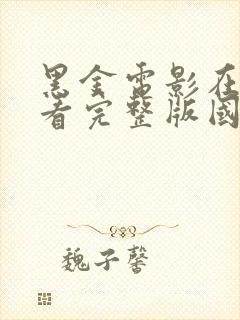 黑金電影在
看完整版國
魏子馨